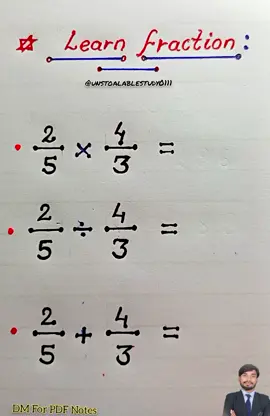 ☆ Learn fraction:
@UNSTOALABLESTUDY0111
• 2/5 × 4/3 =
• 2/5 ÷ 4/3 =
• 2/5 + 4/3 =
DM For PDF Notes